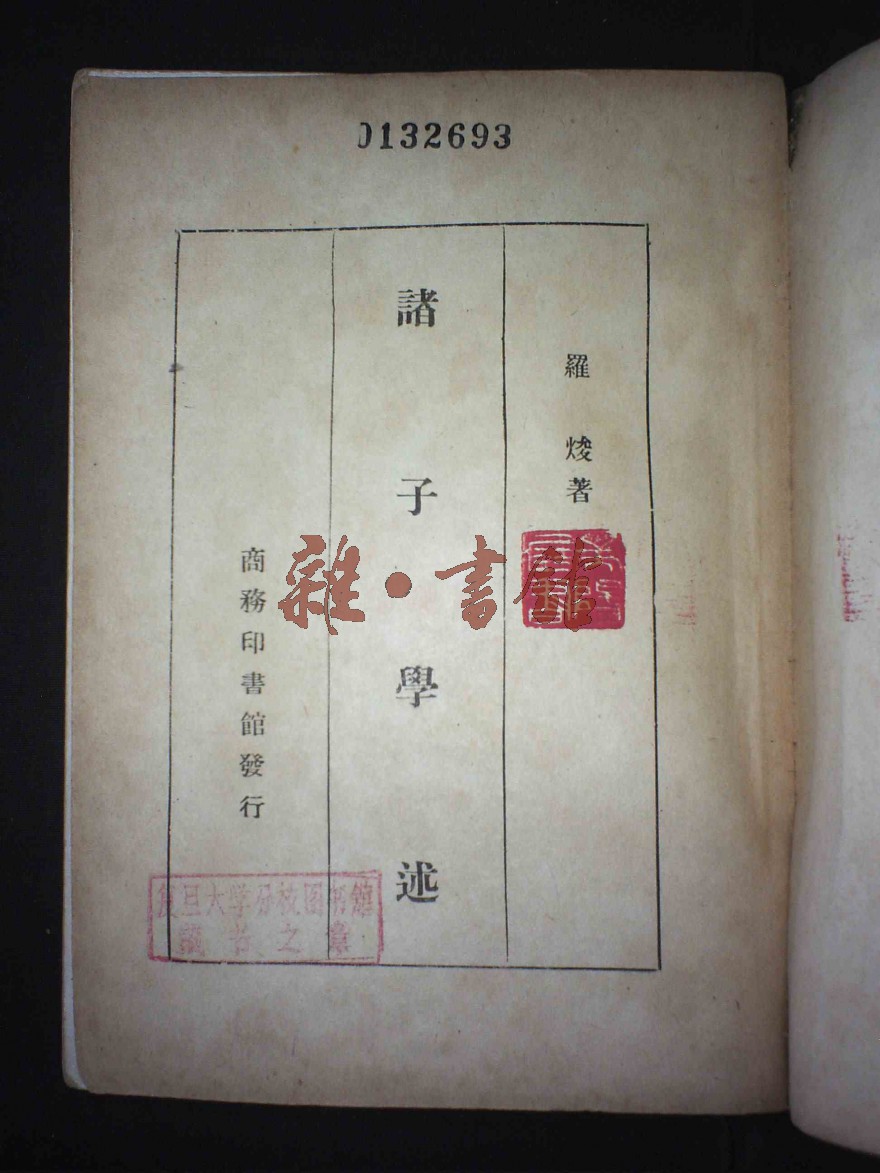 0132693
羅焌著
諸子學述
商務印書館發行
雜·書館
复旦大学分校图书馆
藏书之章